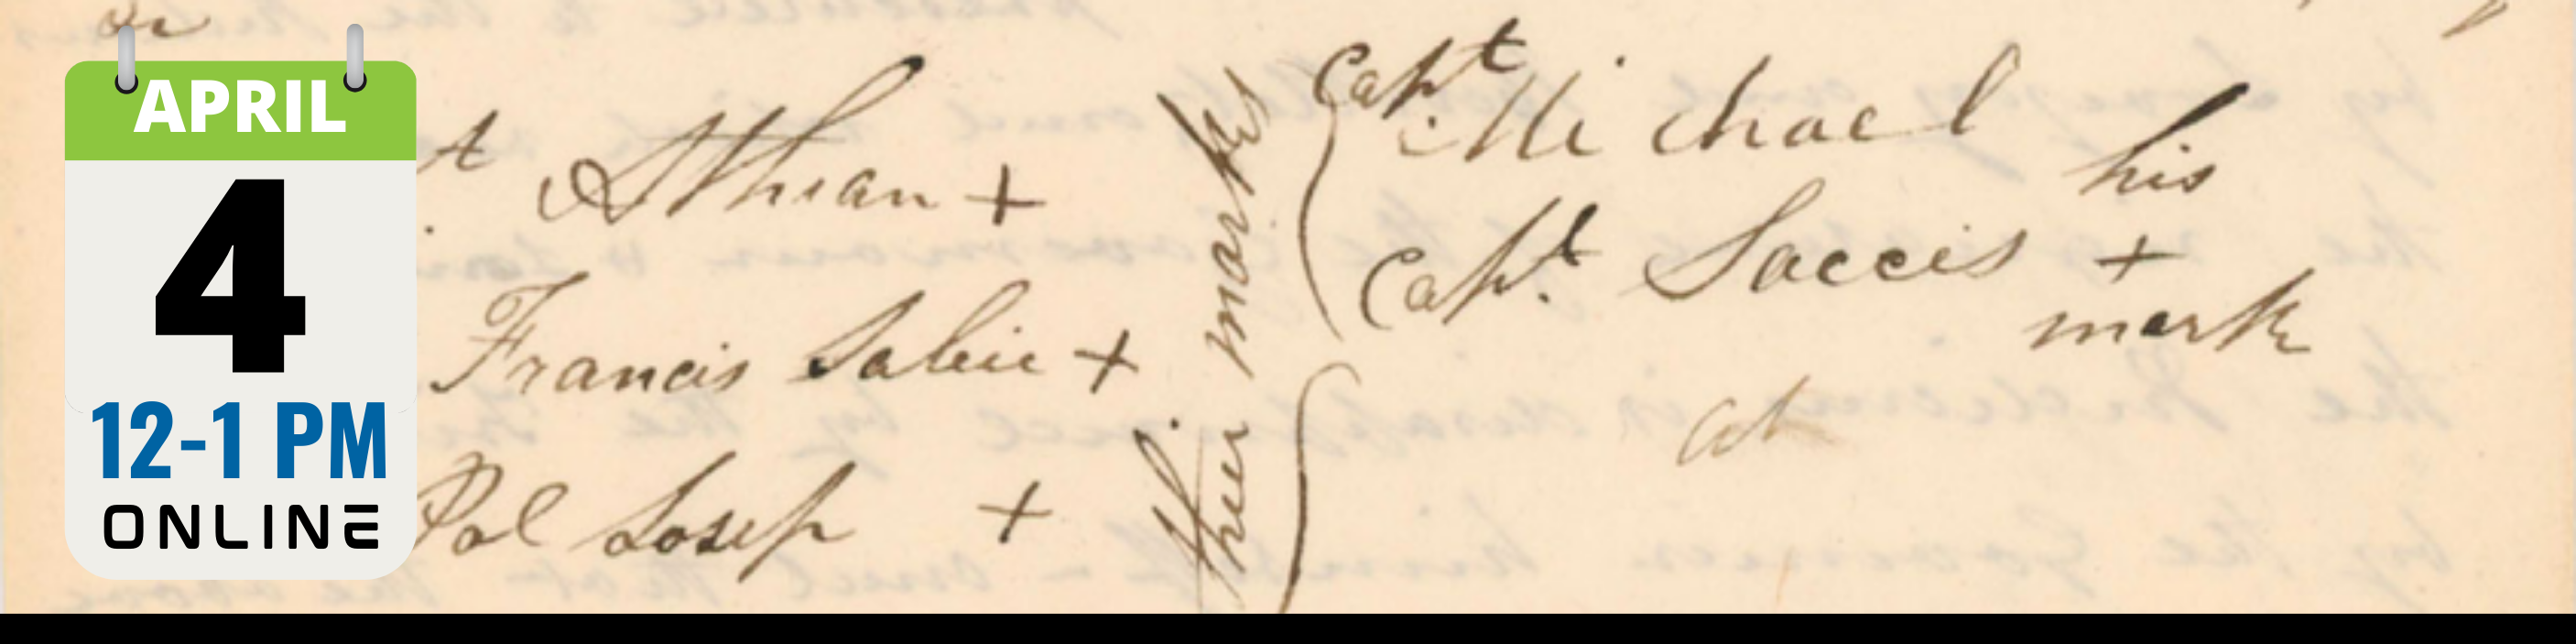 APRIL
4
12-1 PM
ONLINE
Athian +
Francis Sabie +
Pol Josep +
their marks
Capt Michael
Capt. Saccis
his
+
mark